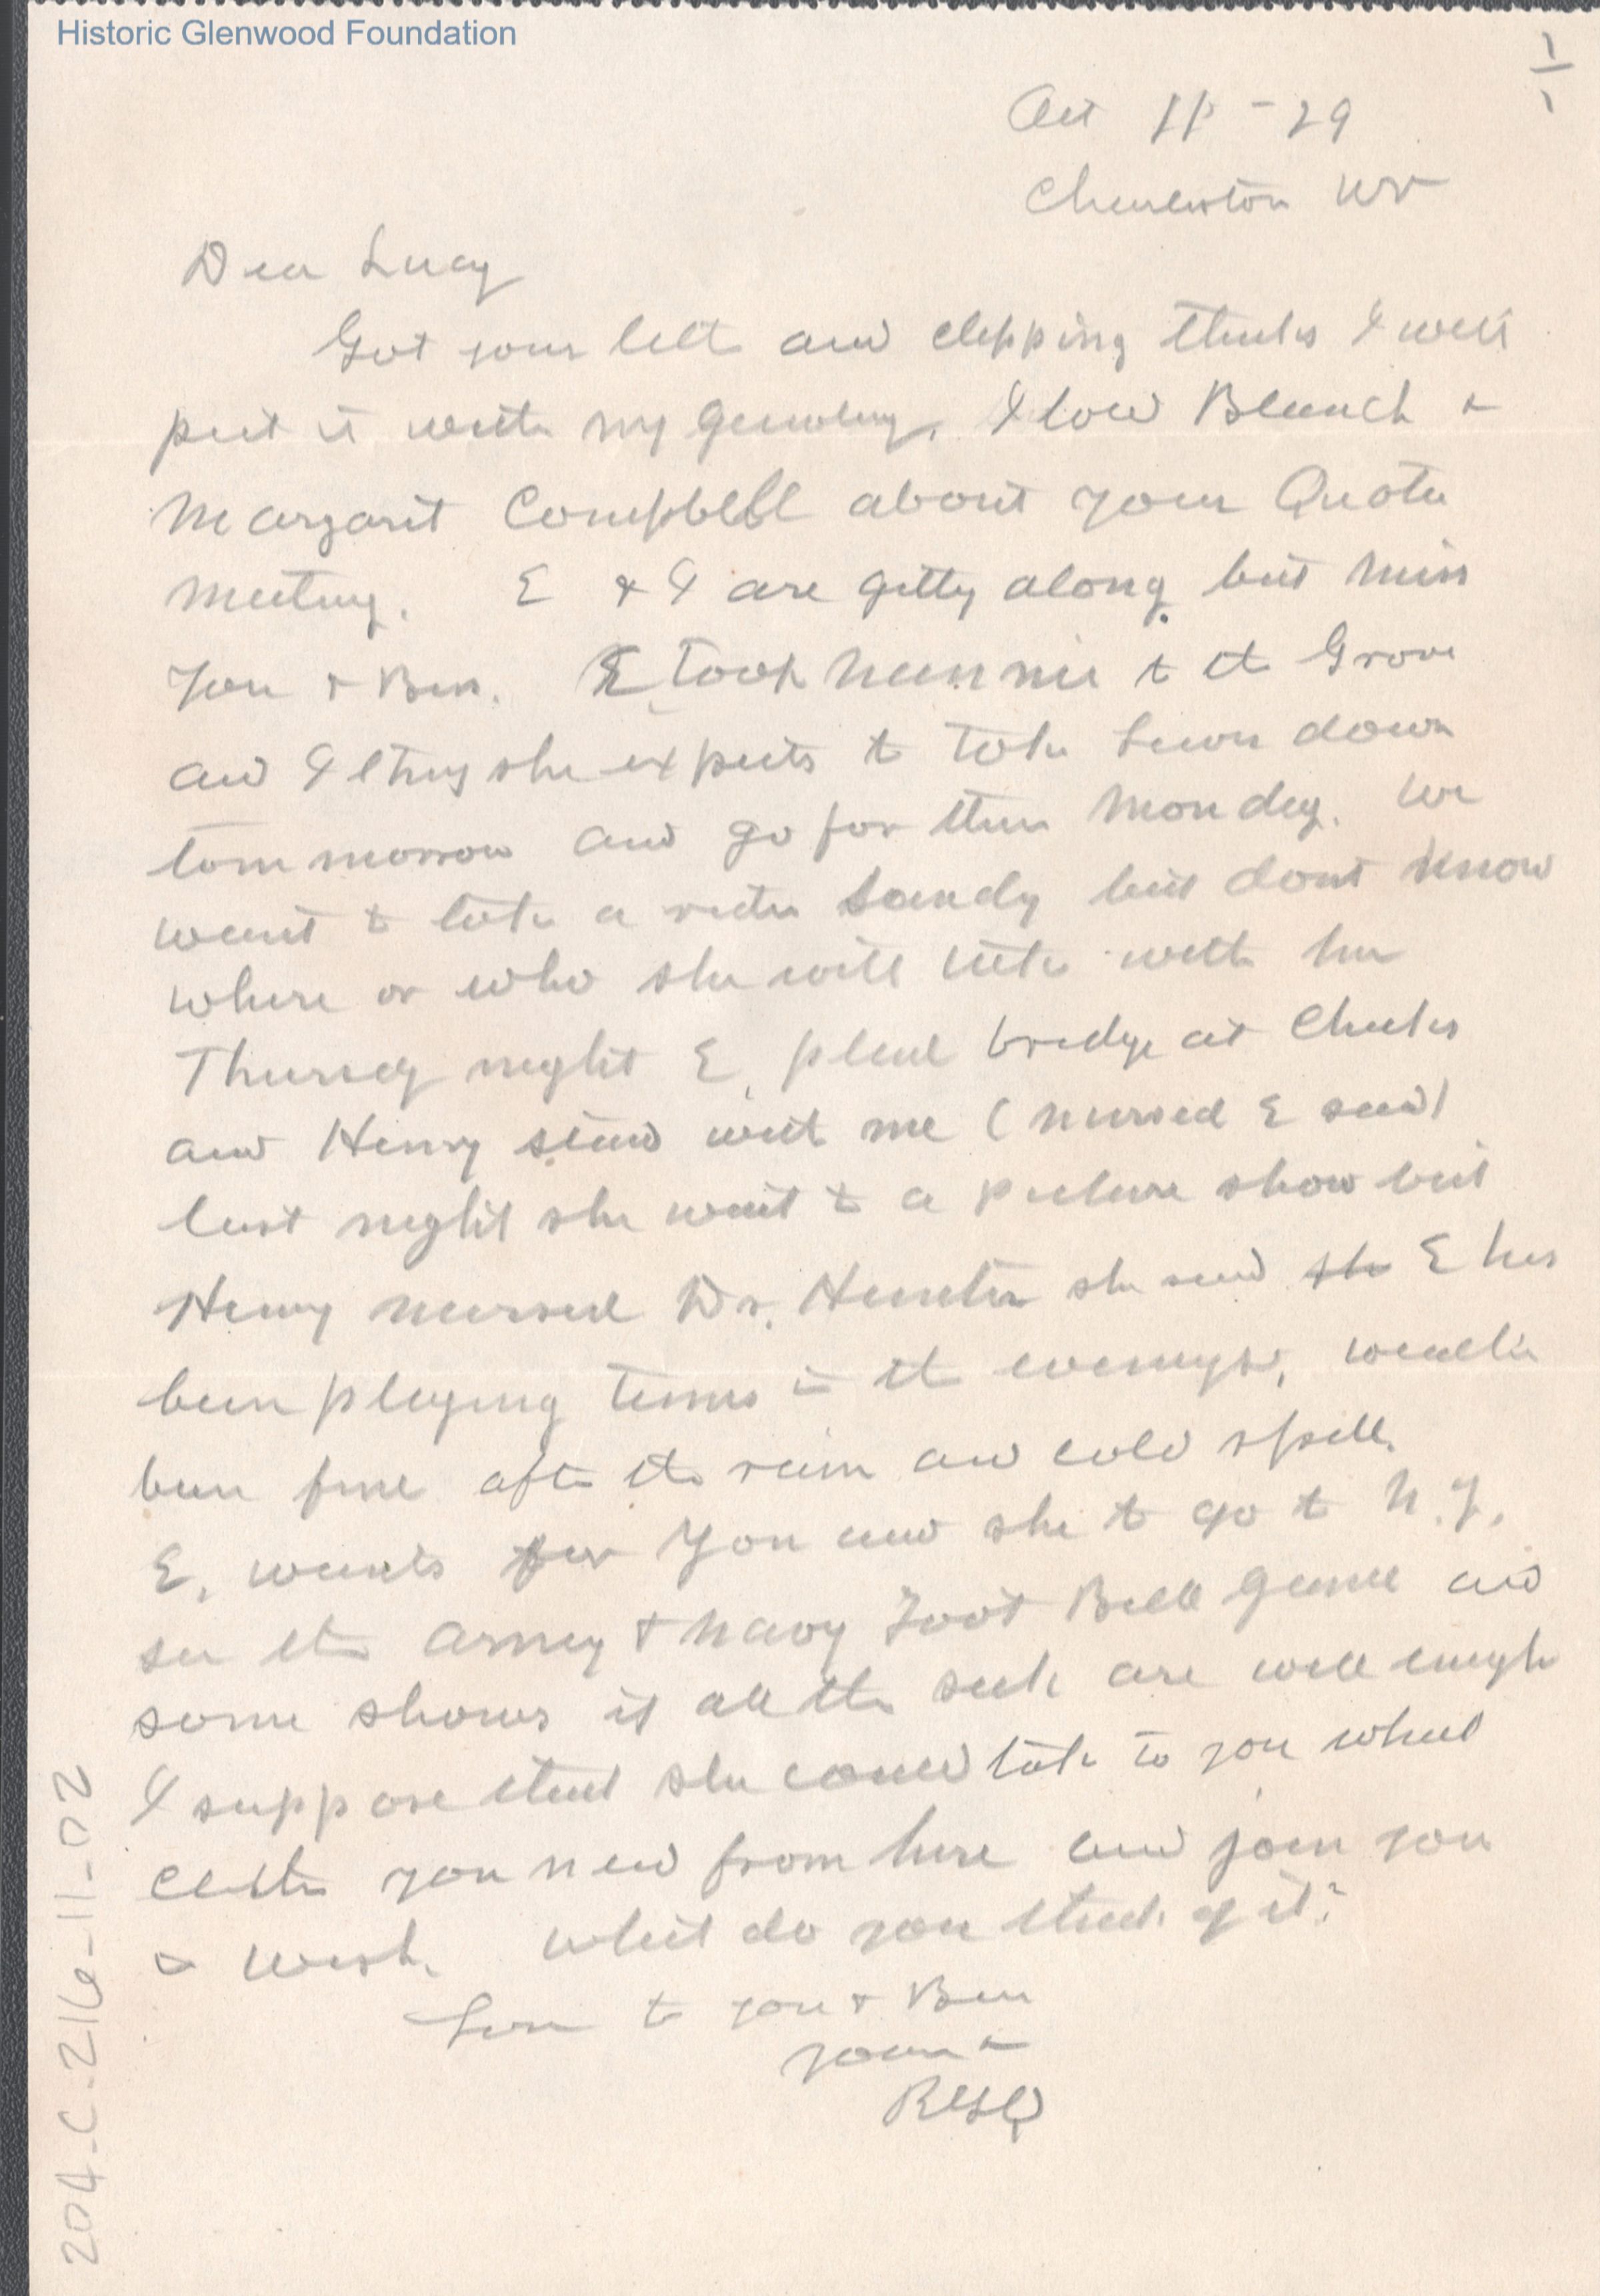 Historic Glenwood Foundation
1/1
Oct 11 - 29
Charleston WV
Dear Lucy
Got your lett and clipping thanks I will
put it with my I told Blanch &
Margarit Campbell about your Quota
meeting. E & I are getty along but miss
you & Ben. E took Nannie to the Grove
and I she expects to take down
tommorrow and go for them Monday. We
want to take a ride Sunday but dont know
where or who she will take with her
Thursday night E. plaed bridge at
and Henry staid with me (nursed E said)
last night she went to a picture show but
Henry nursed Dr. Hunter she said she E has
been playing tennis in the evenings, weather
been fine after the rain and cold spell.
E. wants for you and she to go to N.Y.
see the Army & Navy Foot Ball game and
some shows if all the sick are well enough
I suppose that she could talk to you when
you from here and join you
in Wash. what do you think of it?
Love to you & Ben
your
RGQ
204-C-216-11-02